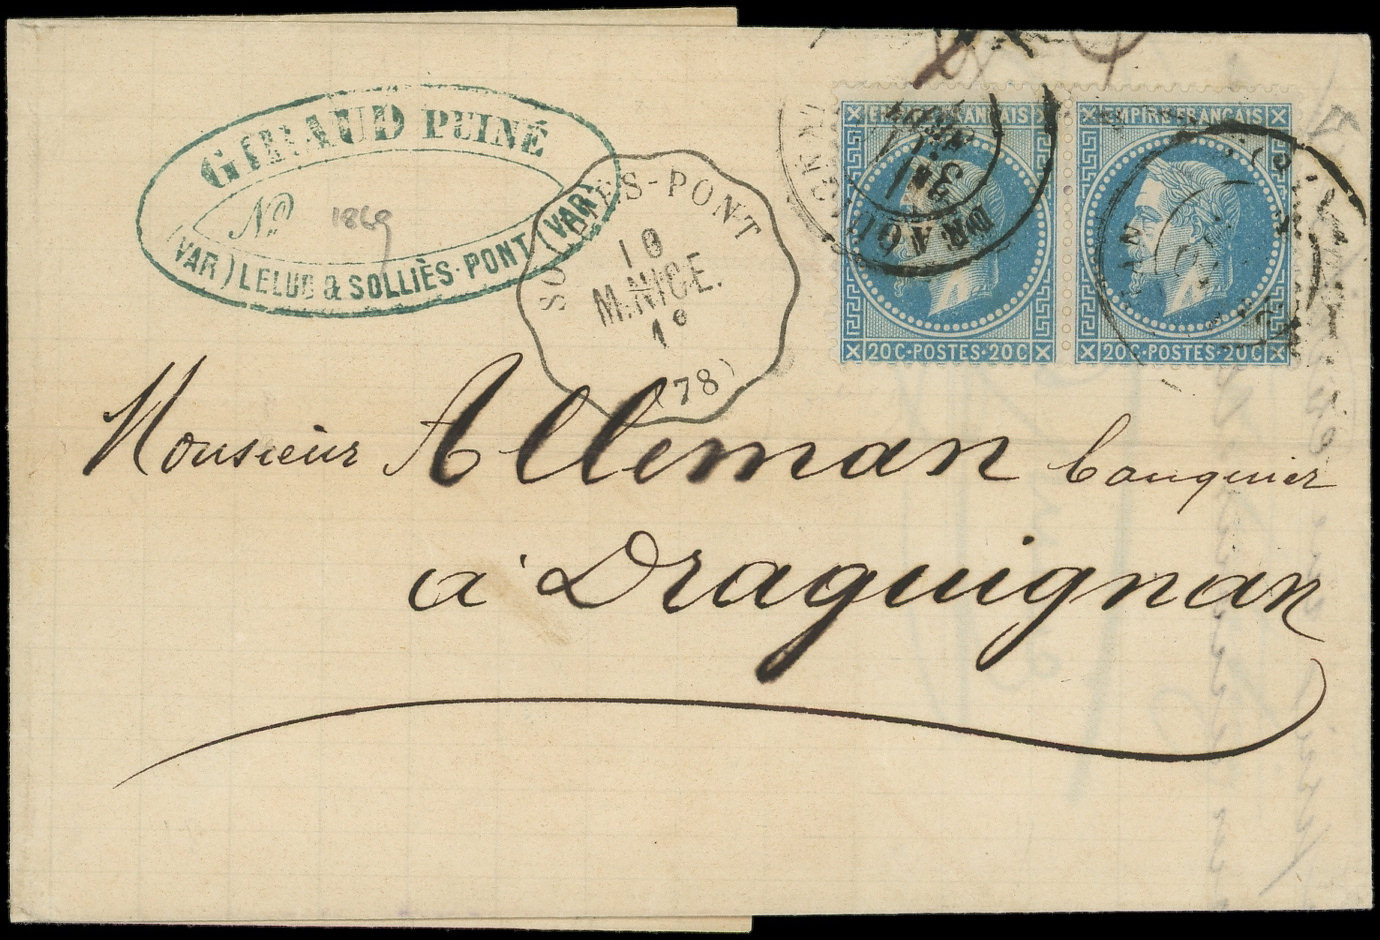 GIRAUD PUINÉ
No 1869
(VAR) LELUC & SOLLIÈS-PONT (VAR)
SOLLIÈS-PONT
10
M.NICE.
1°
(78)
DRAGUIGNAN
3E
EMPIRE FRANÇAIS
20C·POSTES·20C
EMPIRE FRANÇAIS
20C·POSTES·20C
Monsieur Alleman banquier
à Draguignan